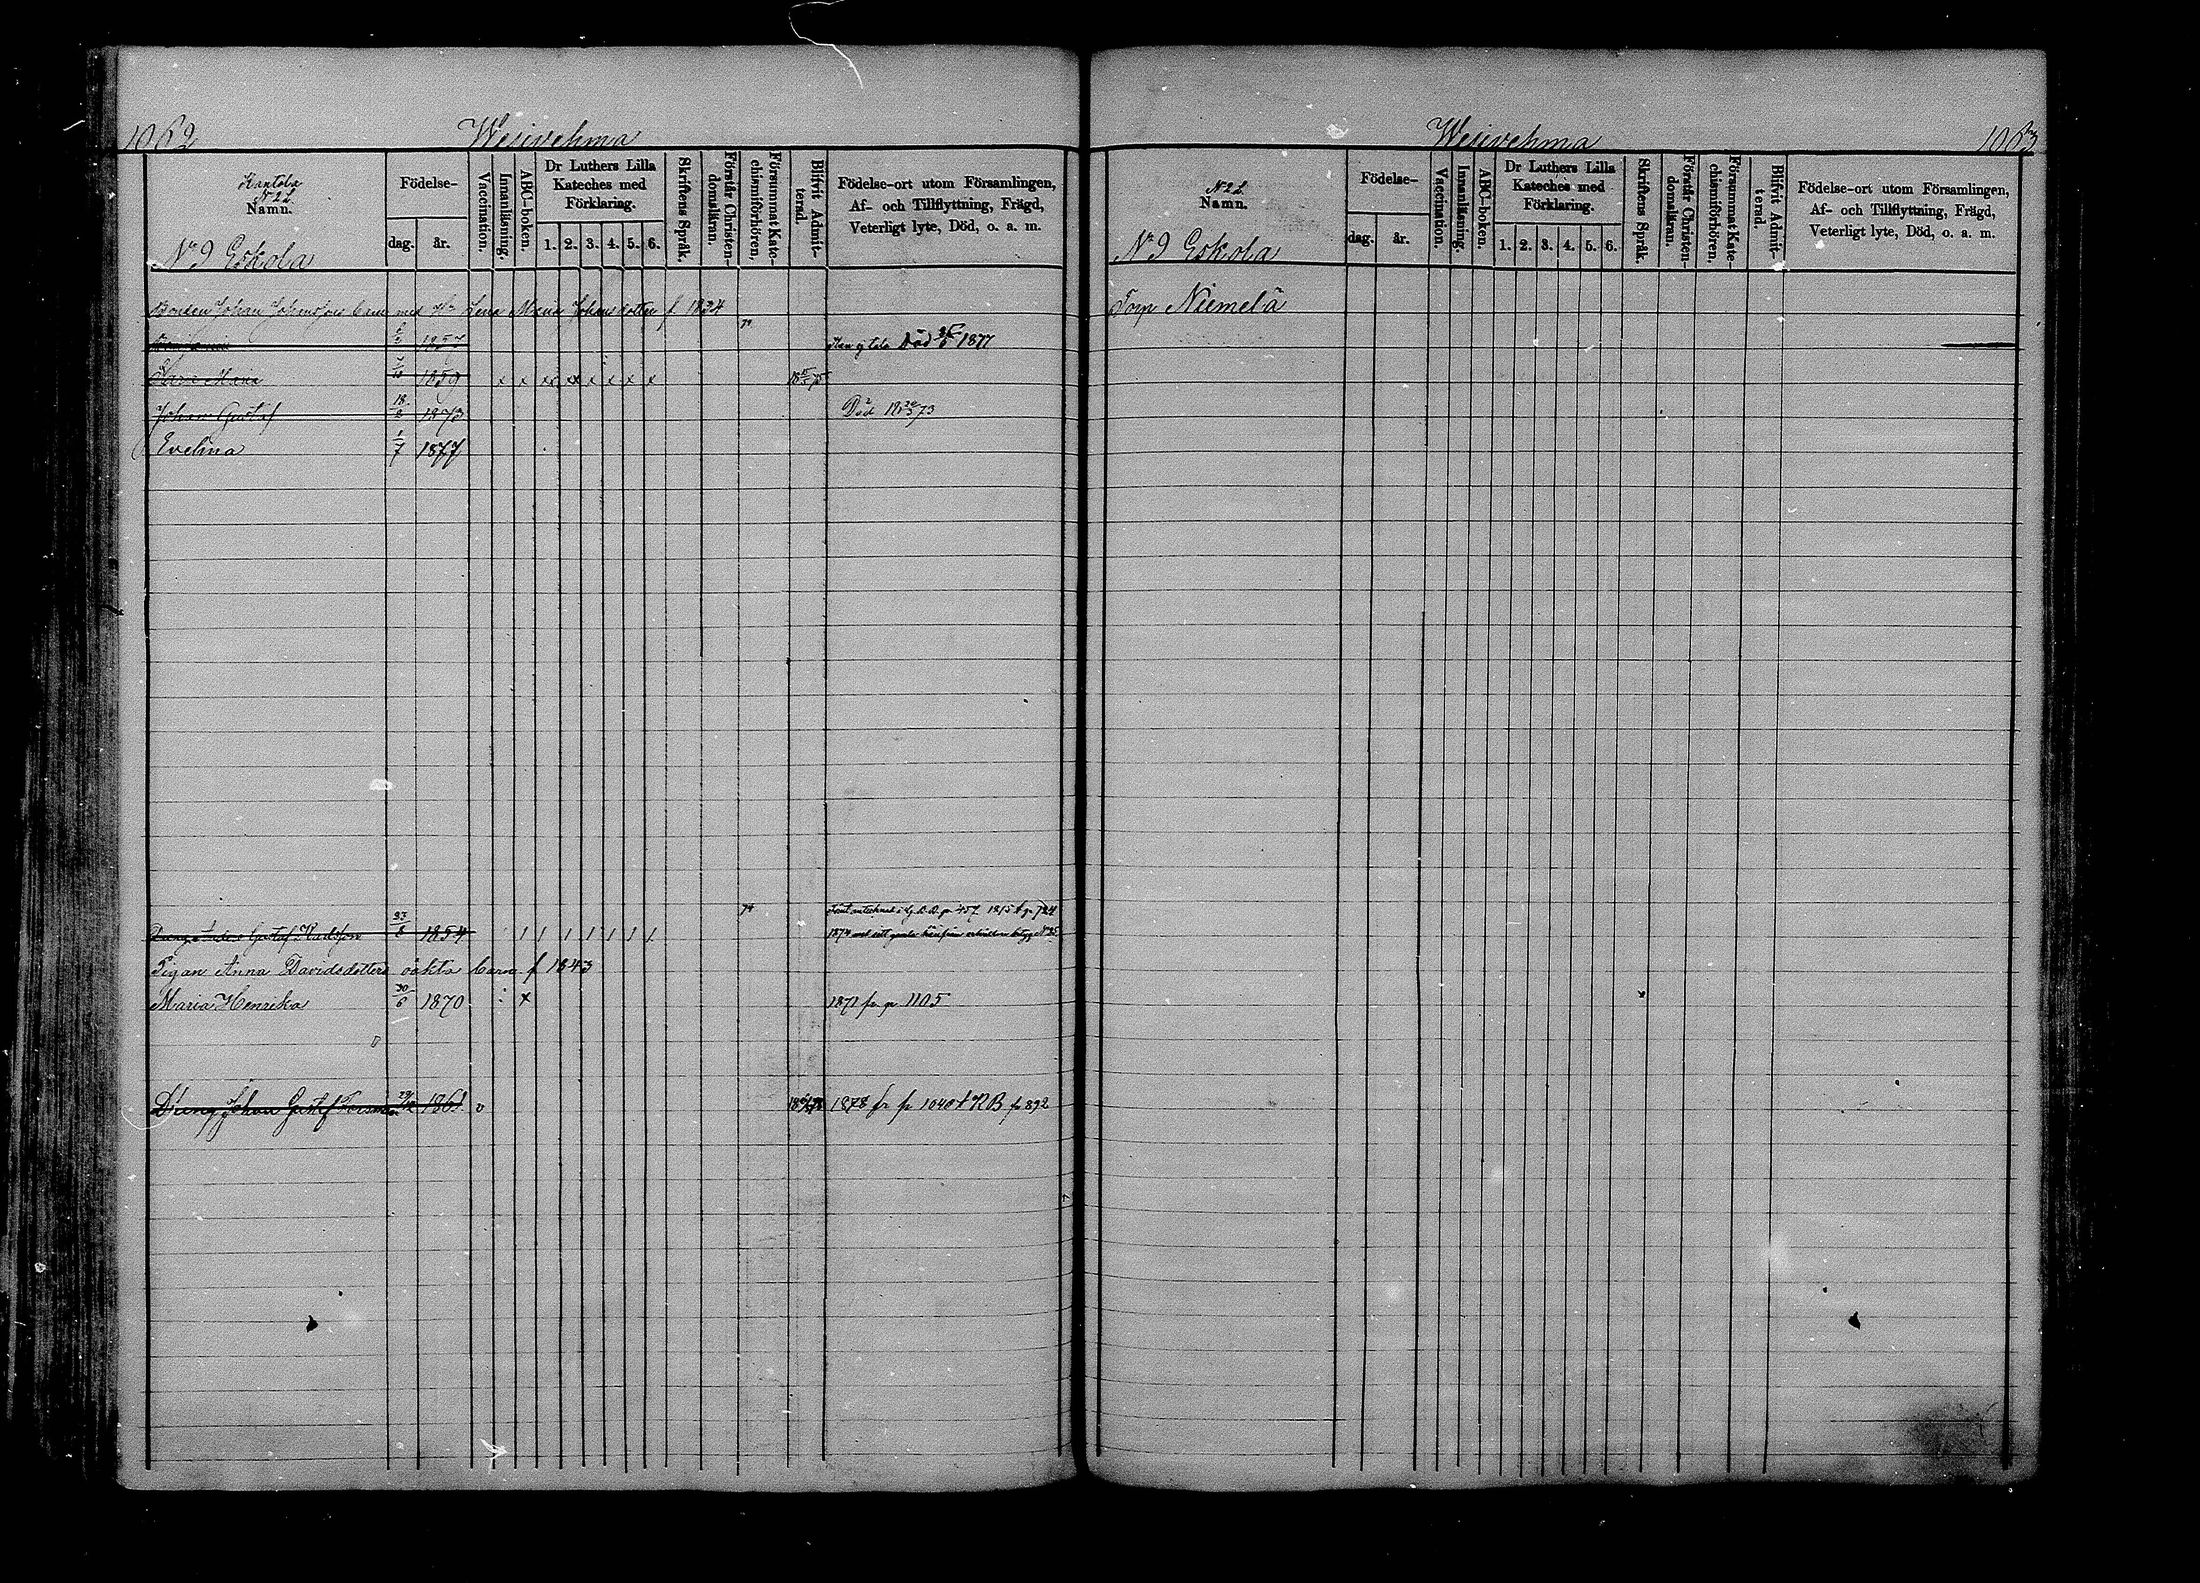 1062 Wesivehma
Kantola
N 2 L
Namn.
Födelse-
dag. år.
Vaccination.
Innanläsning.
ABC-boken.
Dr Luthers Lilla
Kateches med
Förklaring.
1. 2. 3. 4. 5. 6.
Skriftens Språk.
Förstår Christen-
domsläran.
Försummat Kate-
chismiförhören.
Blifvit Admit-
terad.
Födelse-ort utom Församlingen,
Af- och Tillflyttning, Frägd,
Veterligt lyte, Död, o. a. m.
No 9 Eskola
Bonden Johan Johansons barn med Lena Maria Johansdotter f 1834
1857 Kan ej tala Död 1877
Maria 1859 x x x x x x x x
Johan Gustaf 18/2 1873 Död 1873
Evelina 1/7 1877
23/8 1854 Gustaf 1 1 1 1 1 1 1
Pigan Anna Davidsdotters oäkta barn f 1843
Maria Henrika 30/6 1870 x 1871 fr p 1105
Dreng Johan Gustaf 1861 v 1878 fr p 1040 NB p 892
Wesivehma 1063
N 2 L
Namn.
Födelse-
dag. år.
Vaccination.
Innanläsning.
ABC-boken.
Dr Luthers Lilla
Kateches med
Förklaring.
1. 2. 3. 4. 5. 6.
Skriftens Språk.
Förstår Christen-
domsläran.
Försummat Kate-
chismiförhören.
Blifvit Admit-
terad.
Födelse-ort utom Församlingen,
Af- och Tillflyttning, Frägd,
Veterligt lyte, Död, o. a. m.
No 9 Eskola
Torp Niemelä